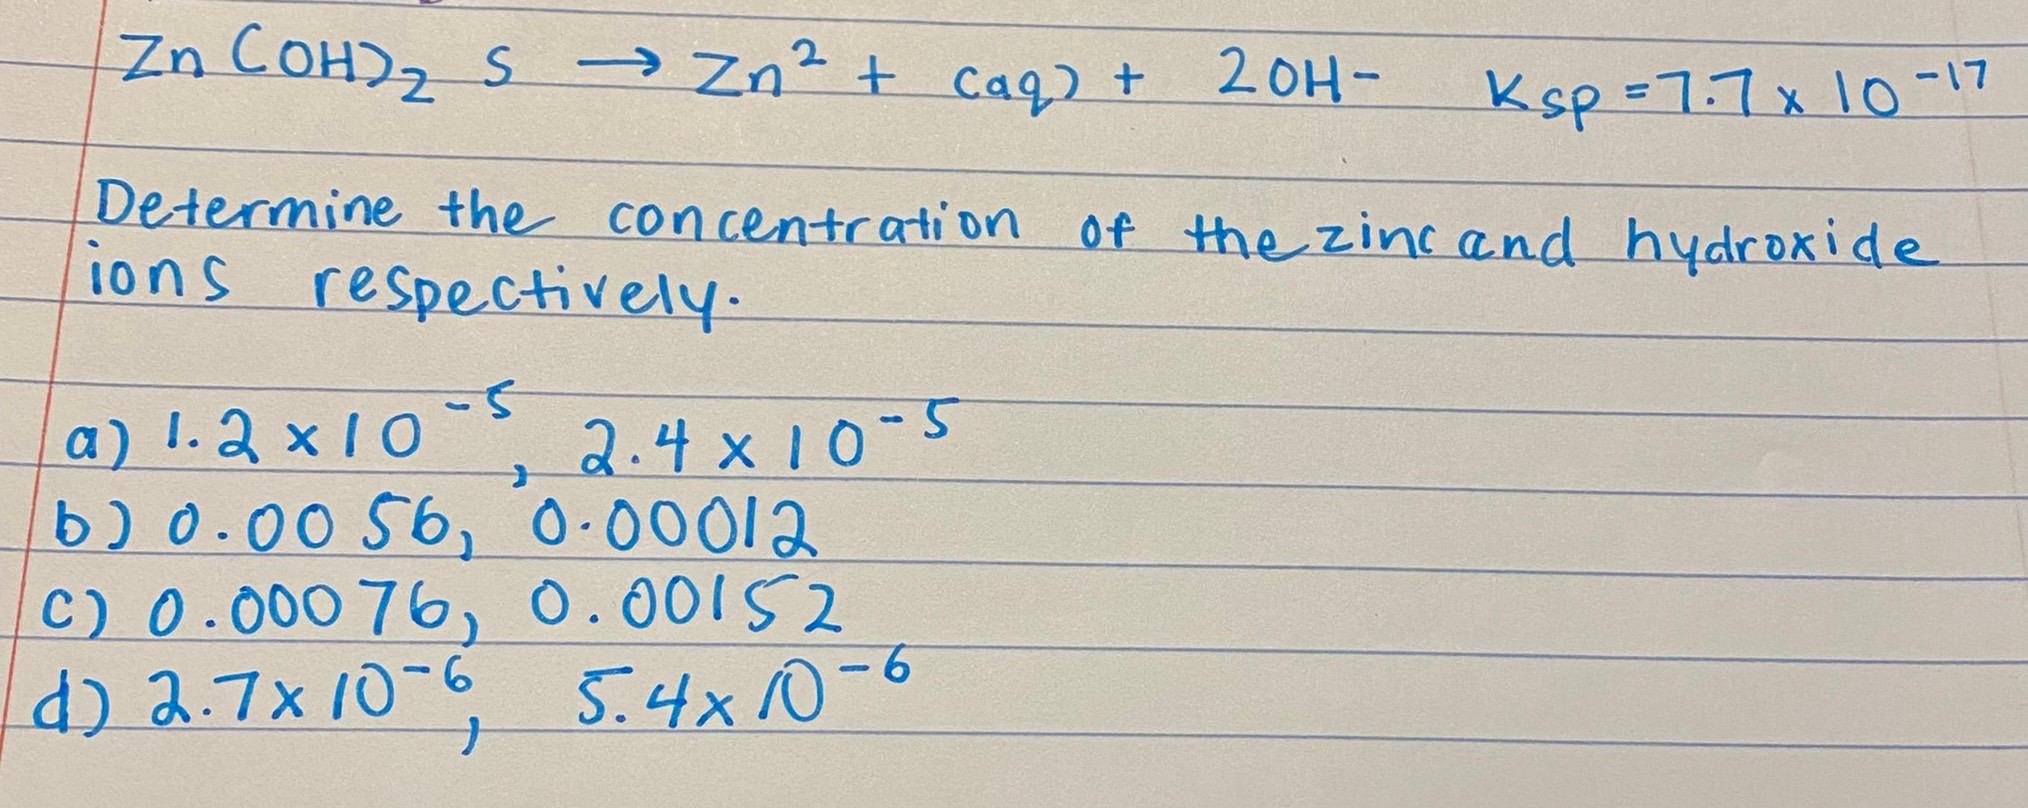 Zn(OH)₂ s → Zn² + (aq) + 2OH- Ksp = 7.7 x 10⁻¹⁷
Determine the concentration of the zinc and hydroxide
ions respectively.
a) 1.2 x 10⁻⁵, 2.4 x 10⁻⁵
b) 0.0056, 0.00012
c) 0.00076, 0.00152
d) 2.7 x 10⁻⁶, 5.4 x 10⁻⁶